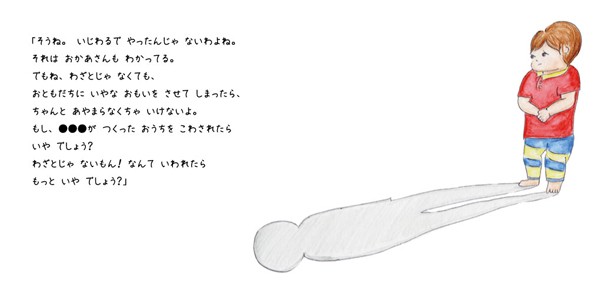 「そうね。 いじわるで やったんじゃ ないわよね。
それは おかあさんも わかってる。
でもね、わざとじゃ なくても、
おともだちに いやな おもいを させて しまったら、
ちゃんと あやまらなくちゃ いけないよ。
もし、●●●が つくった おうちを こわされたら
いや でしょう?
わざとじゃ ないもん! なんて いわれたら
もっと いや でしょう?」